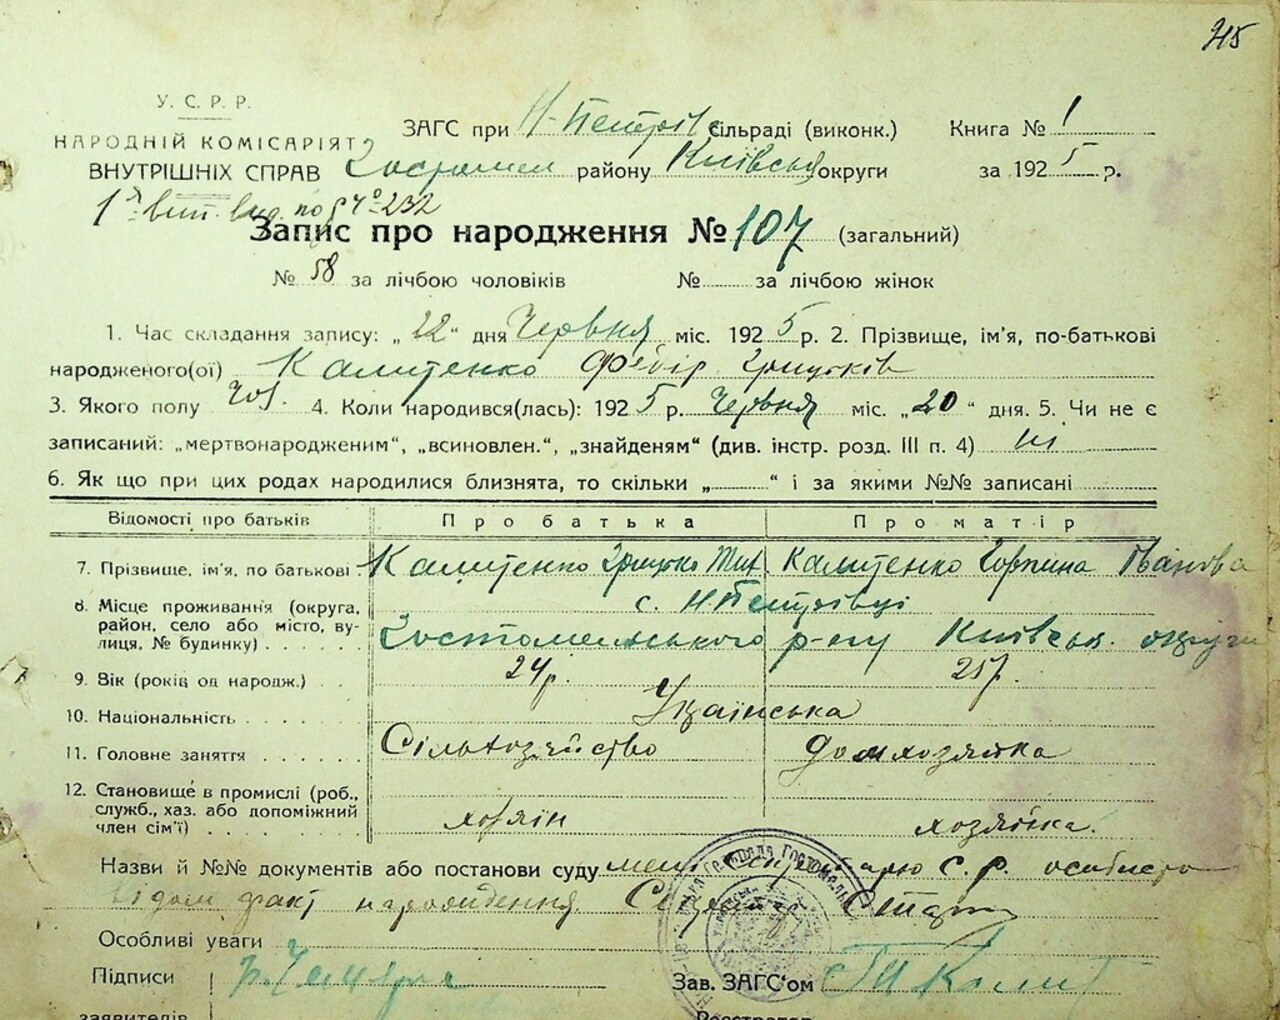 215
У. С. Р. Р.
НАРОДНІЙ КОМІСАРІЯТ
ВНУТРІШНІХ СПРАВ
ЗАГС при Н-Петрівс сільраді (виконк.) Книга № 1
Гостомел району Київськ округи за 1925 р.
по § 4º-232
Запис про народження № 107 (загальний)
№ 58 за лічбою чоловіків № за лічбою жінок
1. Час складання запису: „22“ дня Червня міс. 1925 р. 2. Прізвище, ім'я, по-батькові
народженого(ої) Калитенко Федір Грицьків
3. Якого полу чол. 4. Коли народився(лась): 1925 р. Червня міс. „20“ дня. 5. Чи не є
записаний: „мертвонародженим“, „всиновлен.“, „знайденям“ (див. інстр. розд. III п. 4) ні
6. Як що при цих родах народилися близнята, то скільки „ “ і за якими №№ записані
Відомості про батьків Про батька Про матір
7. Прізвище, ім'я, по батькові Калитенко Грицько Тим. Калитенко Горпина Іванова
8. Місце проживання (округа, район, село або місто, вулиця, № будинку) с. Н.Петрівці
Гостомельського р-ну Київськ. округи
9. Вік (років од народж.) 24р. 25р.
10. Національність Українська
11. Головне заняття Сільхозяйство Домхозяйка
12. Становище в промислі (роб., служб., хаз. або допоміжний член сім'ї) хозяїн хозяйка.
Назви й №№ документів або постанови суду мені Секретарю С. Р. особисто
відом факт народження. Секретар
Особливі уваги
Підписи
заявителів
Зав. ЗАГС'ом
Реєстратор